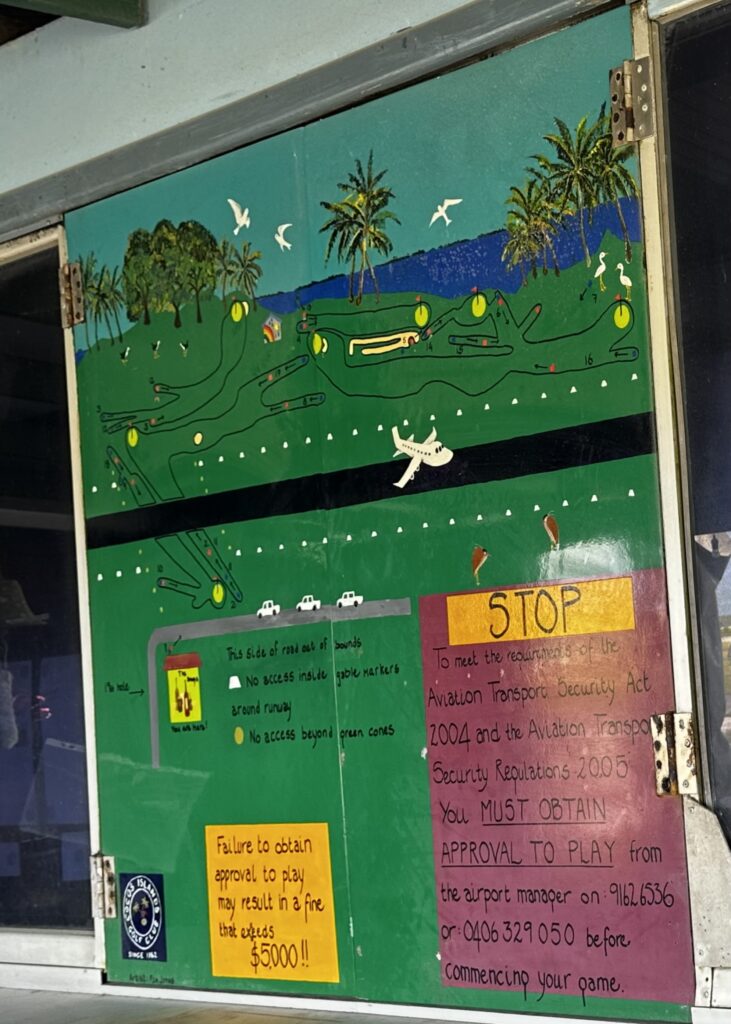 7
16
14
15
This side of road out of bounds
No access inside gable markers
around runway
No access beyond green cones
19th hole
You are Here!
STOP
To meet the requirements of the
Aviation Transport Security Act
2004 and the Aviation Transpo
Security Regulations 2005
You MUST OBTAIN
APPROVAL TO PLAY from
the airport manager on: 91626536
or: 0406 329 050 before
commencing your game.
Failure to obtain
approval to play
may result in a fine
that exeeds
$5,000!!
COCOS ISLANDS
GOLF CLUB
SINCE 1962